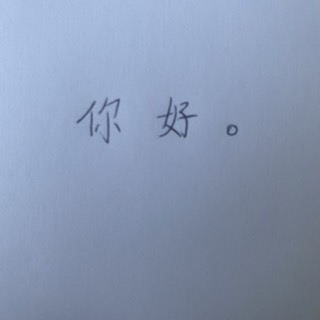 你好。